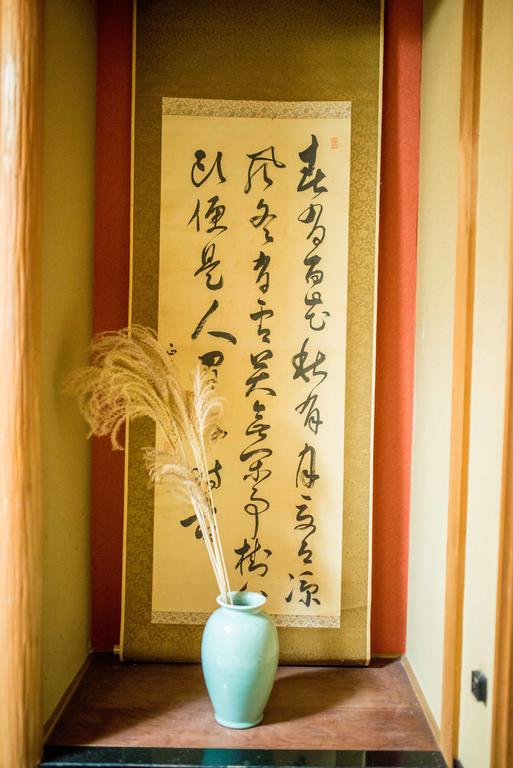 春有百花秋有月夏有涼
風冬有雪若無閑事掛心
頭便是人間好時節